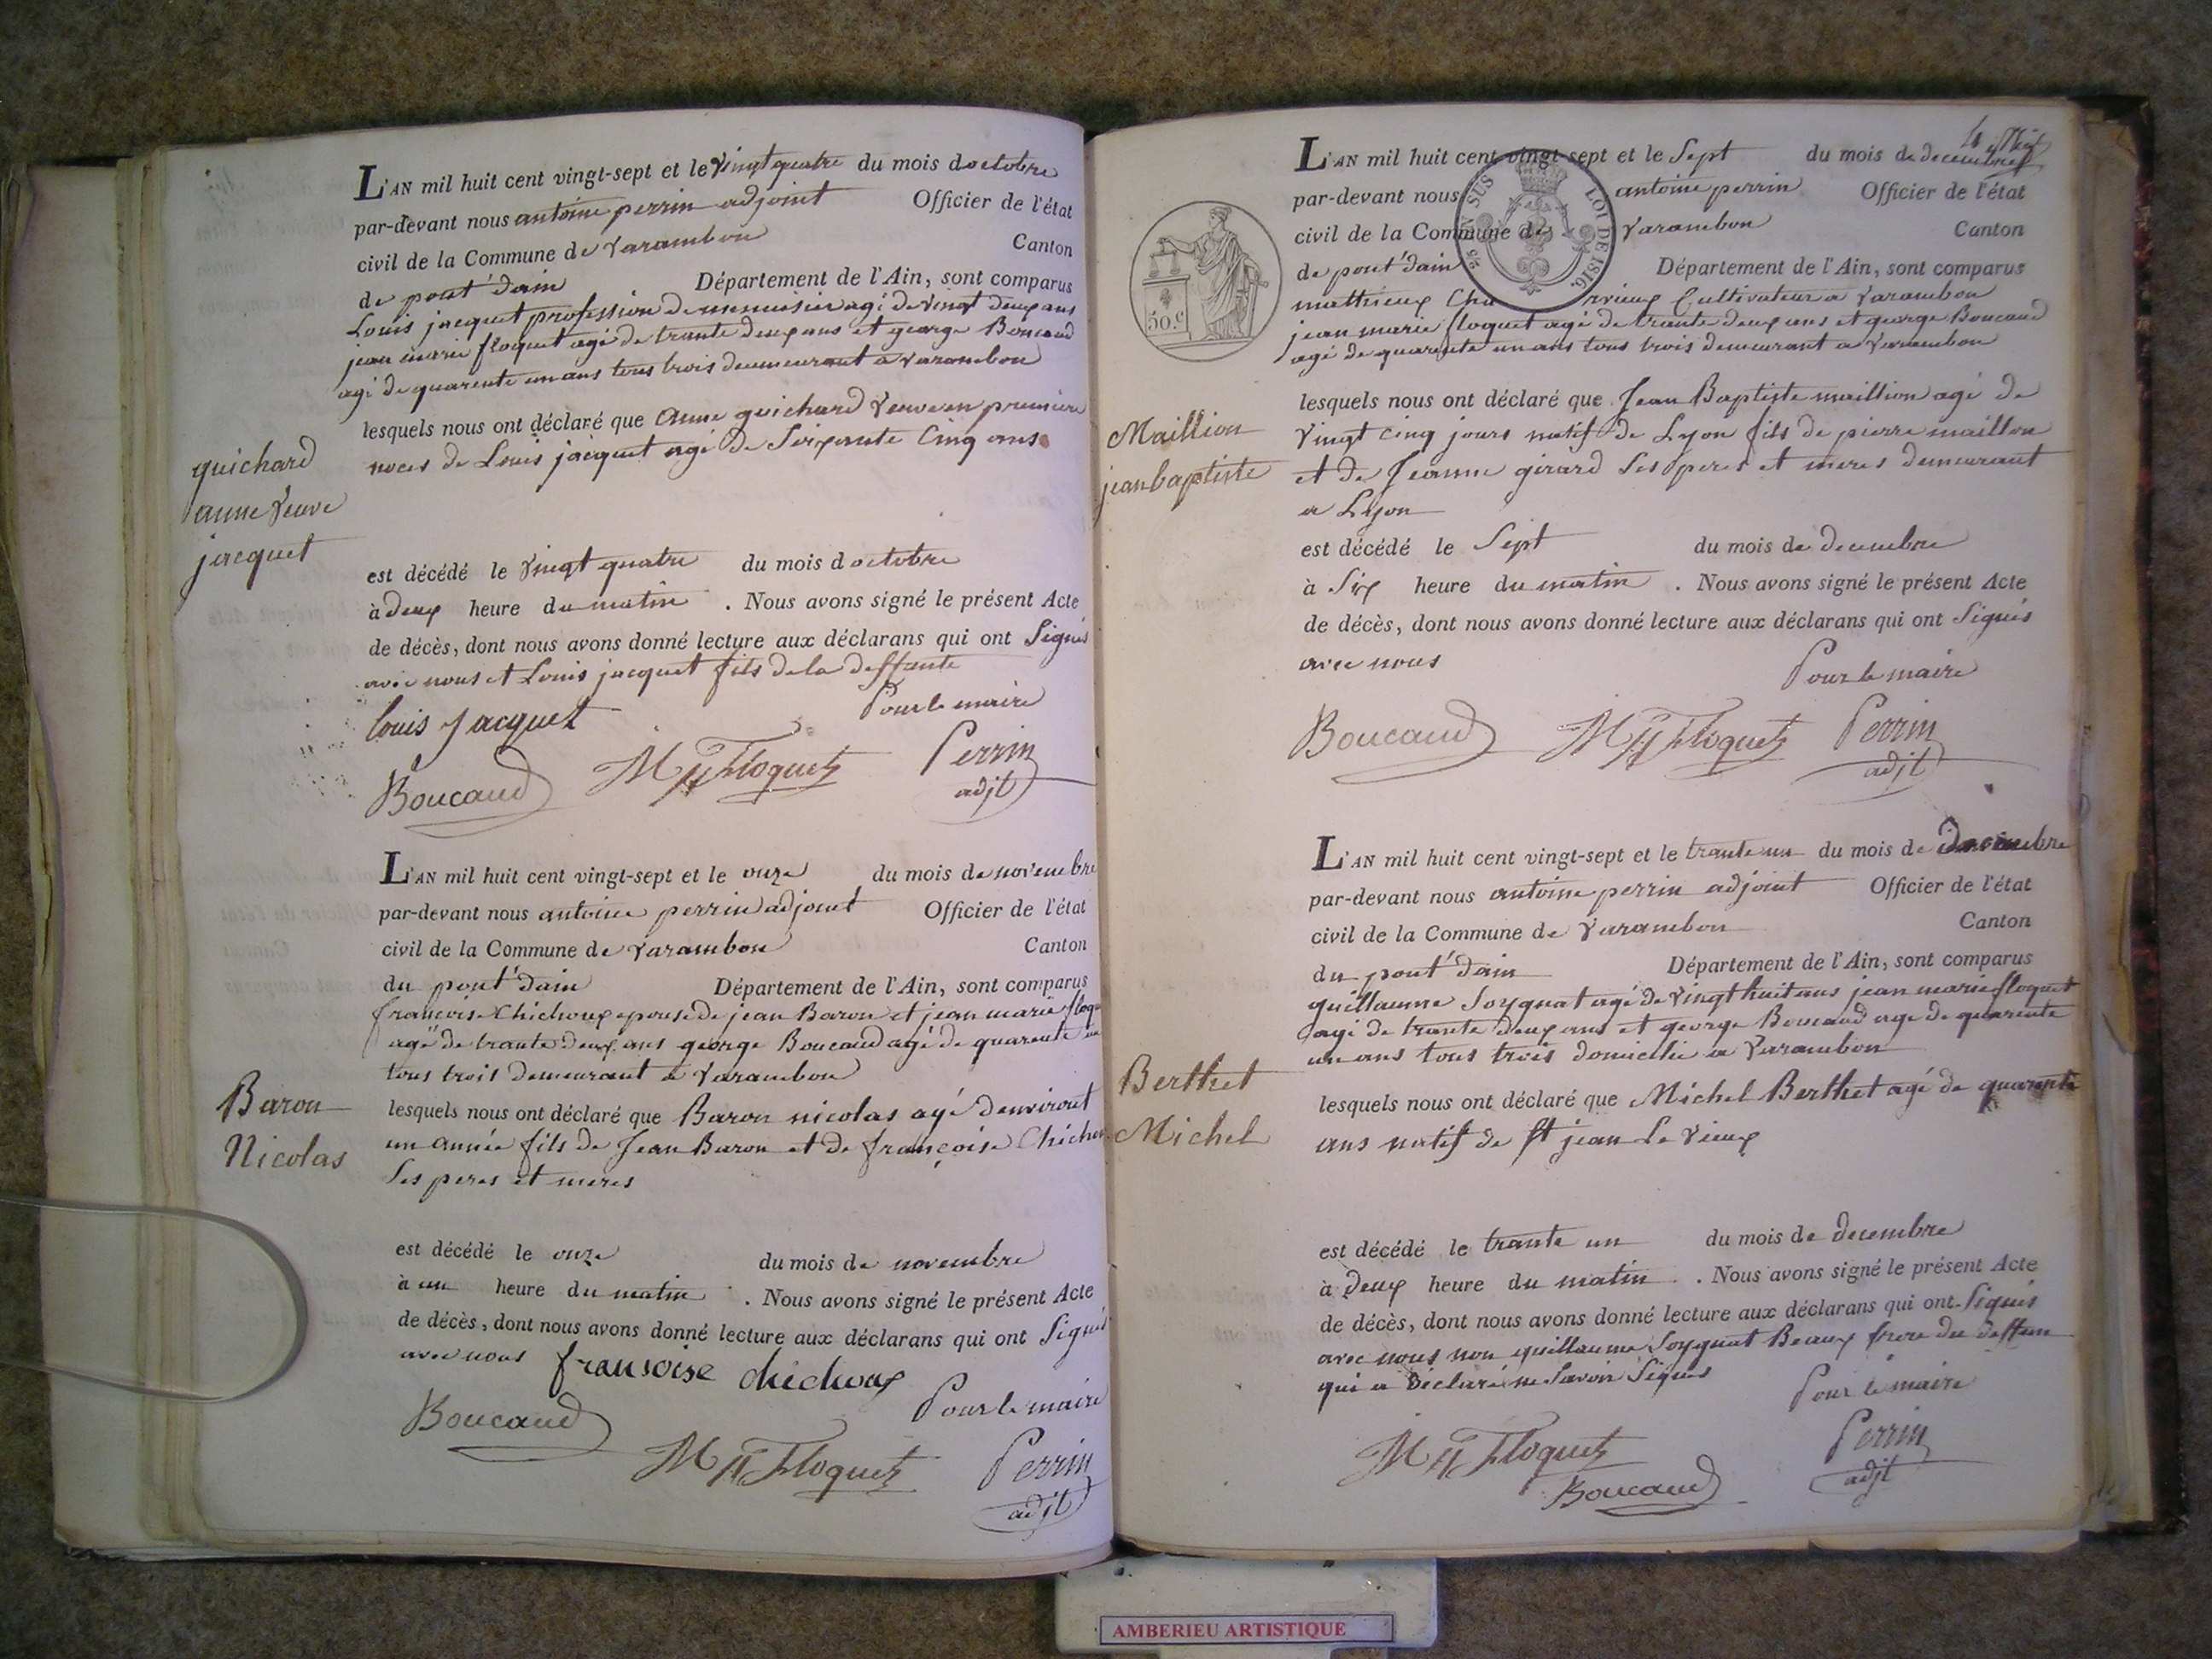 L'AN mil huit cent vingt-sept et le vingt quatre du mois doctobre
par-devant nous antoine perrin adjoint Officier de l'état
civil de la Commune de varambon Canton
de pont d'ain Département de l'Ain, sont comparus
Louis jacquet profession de menuisier agé de vingt deux ans
jean marie floquet agé de trante deux ans et george Boucaud
agé de quarente un ans tous trois demeurant a varambon
lesquels nous ont déclaré que anne guichard veuve en premiere
noces de Louis jacquet agé de Soixante Cinq ans
guichard
anne veuve
jacquet
est décédé le vingt quatre du mois d octobre
à deux heure du matin . Nous avons signé le présent Acte
de décès, dont nous avons donné lecture aux déclarans qui ont Signés
avec nous et Louis jacquet fils de la deffante
Pour le maire
louis jacquet
Boucaud M Floquet Perrin
adjt
L'AN mil huit cent vingt-sept et le onze du mois de novembre
par-devant nous antoine perrin adjoint Officier de l'état
civil de la Commune de varambon Canton
du pont d'ain Département de l'Ain, sont comparus
francoise Chichoux epouse de jean Baron et jean marie
agé de trante deux ans george Boucaud agé de quarente un
tous trois demeurant a varambon
Baron
Nicolas
lesquels nous ont déclaré que Baron nicolas agé denviront
un année fils de Jean Baron et de françoise
Ses peres et meres
est décédé le onze du mois de novembre
à un heure du matin . Nous avons signé le présent Acte
de décès, dont nous avons donné lecture aux déclarans qui ont Signés
avec nous fransoise chichoux
Pour le maire
Boucaud M Floquet Perrin
adjt
L'AN mil huit cent vingt-sept et le Sept du mois de decembre
par-devant nous antoine perrin Officier de l'état
civil de la Commune de varambon Canton
de pont d'ain Département de l'Ain, sont comparus
LOI DE 1816
50.c
mathieux Cultivateur a varambon
jean marie floquet agé de trante deux ans et george Boucaud
agé de quarente un ans tous trois demeurant a varambon
Maillion
jean baptiste
lesquels nous ont déclaré que Jean Baptiste maillion agé de
vingt cinq jours natif de Lyon fils de pierre maillon
et de Jeanne girard Ses peres et meres demeurant
a Lyon
est décédé le Sept du mois de decembre
à Six heure du matin . Nous avons signé le présent Acte
de décès, dont nous avons donné lecture aux déclarans qui ont Signés
avec nous Pour le maire
Boucaud M Floquet Perrin
adjt
L'AN mil huit cent vingt-sept et le trante un du mois de decembre
par-devant nous antoine perrin adjoint Officier de l'état
civil de la Commune de varambon Canton
du pont d'ain Département de l'Ain, sont comparus
guillaume Soygnat agé de vingt huit ans jean marie floquet
agé de trante deux ans et george Boucaud age de quarente
un ans tous trois domicilié a varambon
Berthet
Michel
lesquels nous ont déclaré que Michel Berthet agé de quarente
ans natif de St jean Le vieux
est décédé le trante un du mois de decembre
à deux heure du matin . Nous avons signé le présent Acte
de décès, dont nous avons donné lecture aux déclarans qui ont Signés
avec nous non guillaume Soygnat Beaux frere du deffun
qui a déclaré ne Savoir Signés
Pour le maire
M Floquet Perrin
Boucaud adjt
AMBERIEU ARTISTIQUE